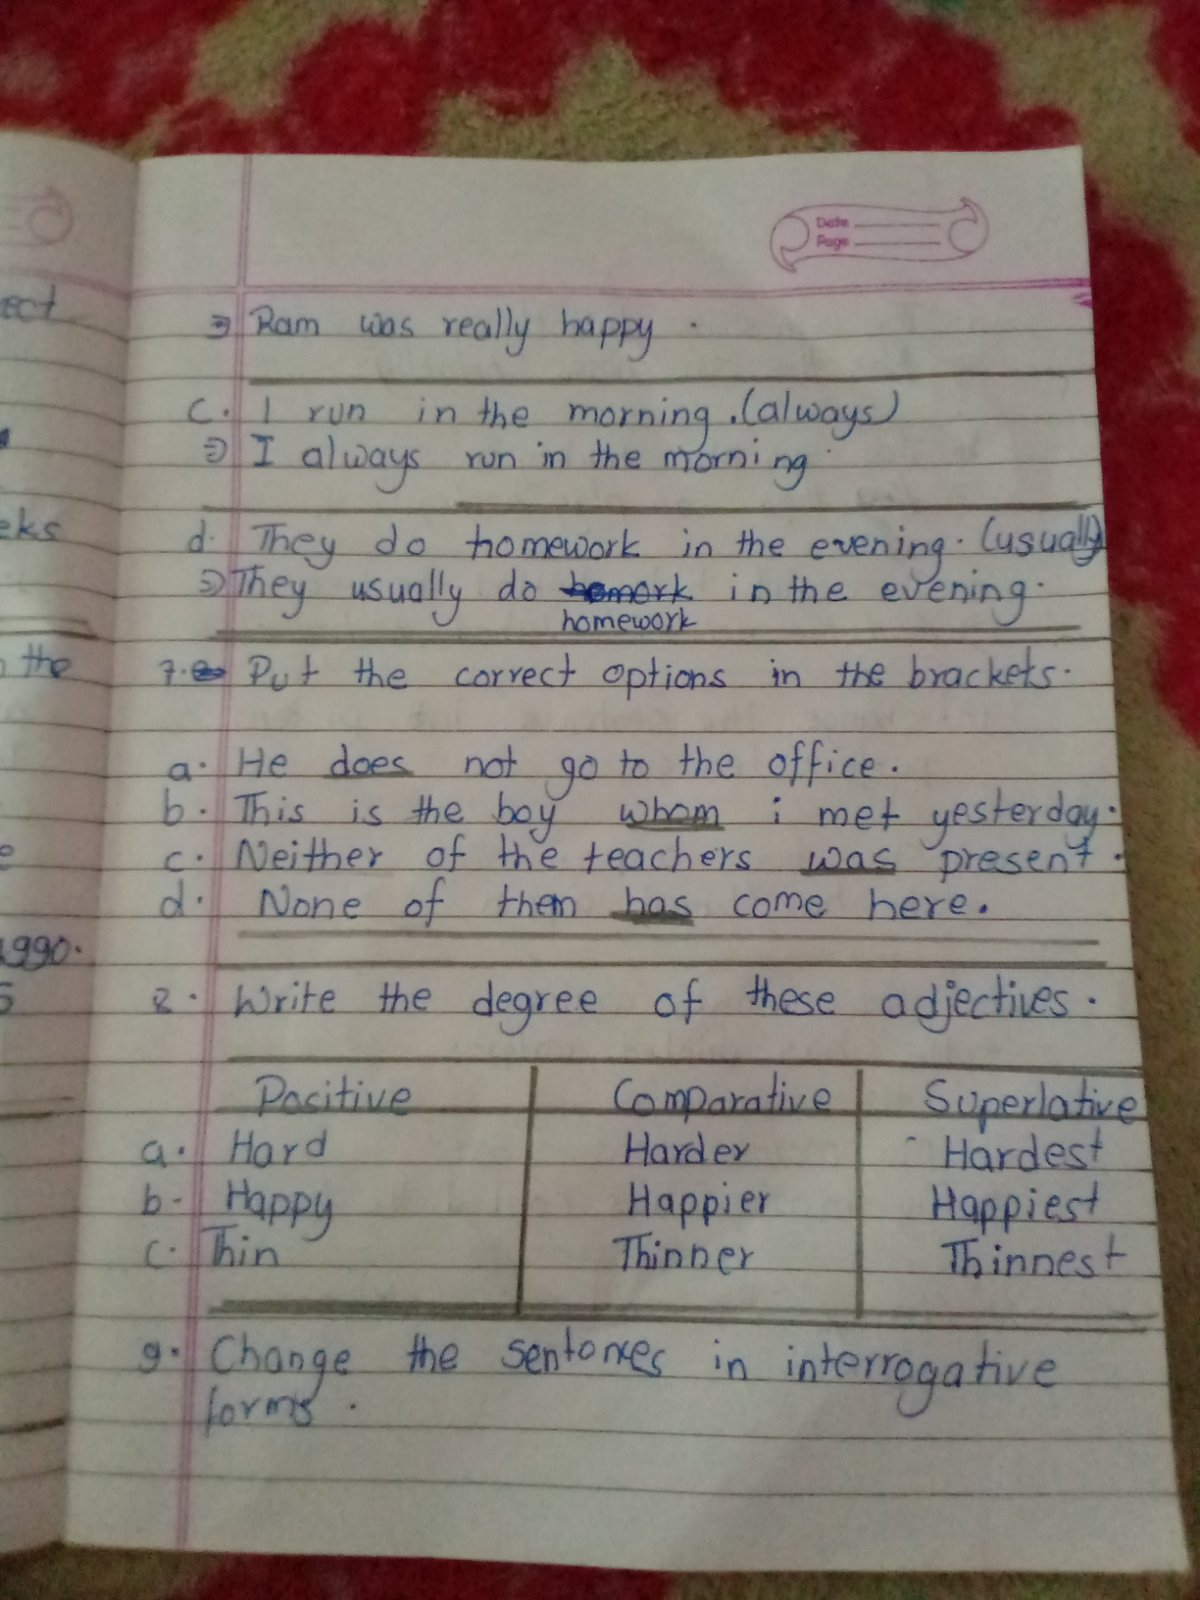 Date
Page
⇒ Ram was really happy.
c. I run in the morning. (always)
⇒ I always run in the morning.
d. They do homework in the evening. (usually)
⇒ They usually do homework in the evening.
7. Put the correct options in the brackets.
a. He does not go to the office.
b. This is the boy whom i met yesterday.
c. Neither of the teachers was present.
d. None of them has come here.
8. Write the degree of these adjectives.
Positive Comparative Superlative
a. Hard Harder Hardest
b. Happy Happier Happiest
c. Thin Thinner Thinnest
9. Change the sentences in interrogative
forms.
ect
eks
the
1990.
5